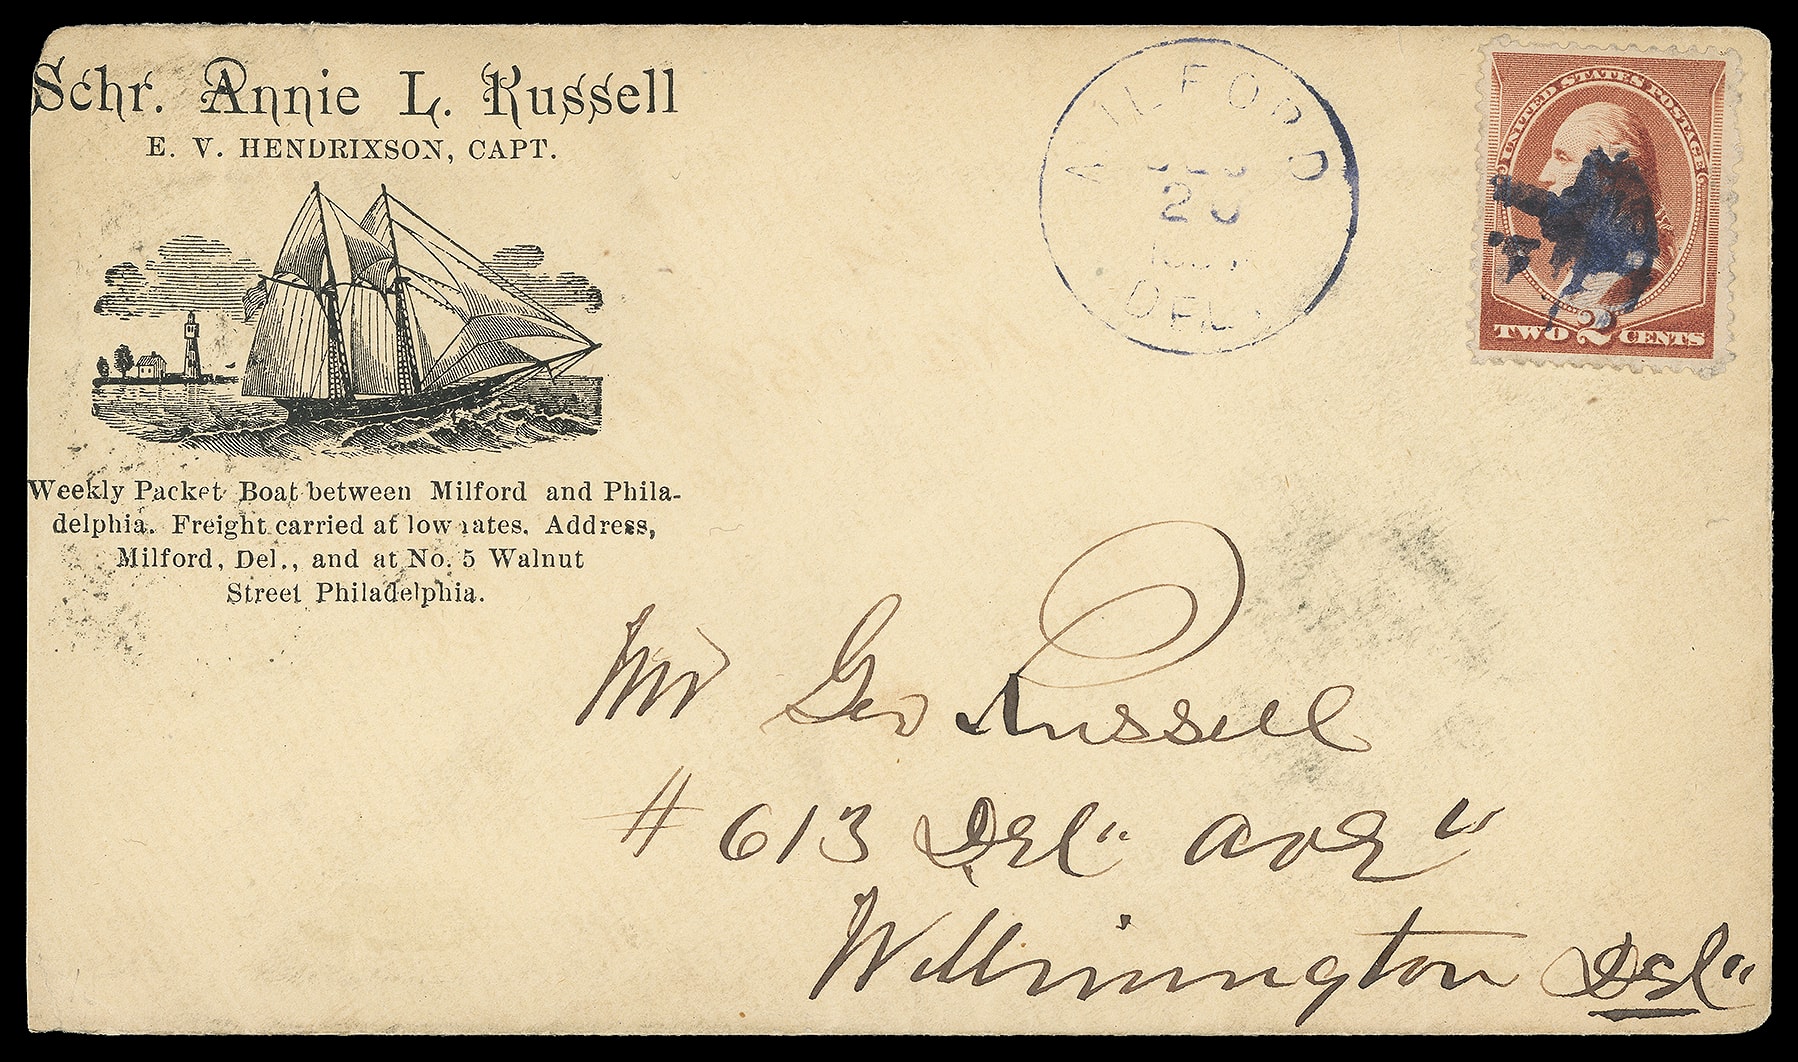 Schr. Annie L. Russell
E. V. HENDRIXSON, CAPT.
Weekly Packet Boat between Milford and Phila-
delphia. Freight carried at low rates. Address,
Milford, Del., and at No. 5 Walnut
Street Philadelphia.
MILFORD
DEL.
UNITED STATES POSTAGE
TWO 2 CENTS
Mr Geo Russell
# 613 Del" ave"
Wilmington Del"